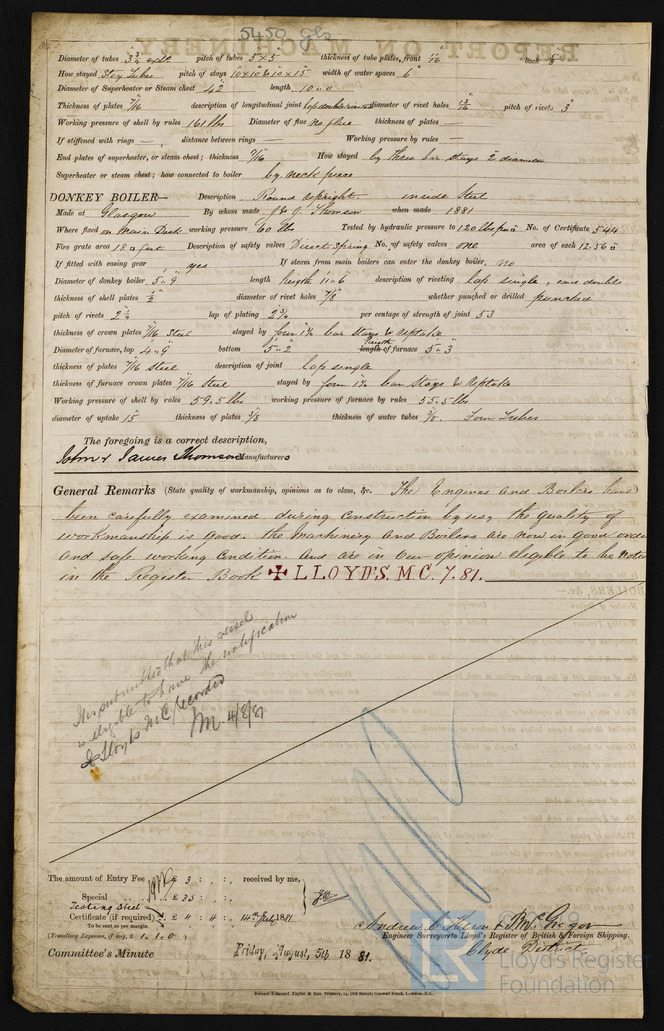 5450 gls
Diameter of tubes 3¾ extl pitch of tubes 5 x 5 thickness of tube plates, front 11/16 back
How stayed Stay Tubes pitch of stays 10 x 10 & 10 x 15 width of water spaces 6"
Diameter of Superheater or Steam chest 42 length 10-0
Thickness of plates 7/16 description of longitudinal joint lap double riveted diameter of rivet holes pitch of rivets 3"
Working pressure of shell by rules 161 lbs Diameter of flue no flue thickness of plates —
If stiffened with rings — distance between rings — Working pressure by rules —
End plates of superheater, or steam chest; thickness 9/16 How stayed by three bar stays 2 diameter
Superheater or steam chest; how connected to boiler by neck piece
DONKEY BOILER— Description Round upright inside Steel
Made at Glasgow By whom made J & J. Thomson when made 1881
Where fixed on Main Deck working pressure 60 lbs Tested by hydraulic pressure to 120 lbs No. of Certificate 544
Fire grate area 18 □ feet Description of safety valves Direct Spring No. of safety valves one area of each 12.56 □
If fitted with easing gear yes If steam from main boilers can enter the donkey boiler, no
Diameter of donkey boiler 5-9 length height 11-6 description of riveting lap single, and double
thickness of shell plates ½ diameter of rivet holes 7/8 whether punched or drilled punched
pitch of rivets 2¼ lap of plating 2¾ per centage of strength of joint 53
thickness of crown plates 7/16 Steel stayed by four 1¾ bar stays & uptake
Diameter of furnace, top 4-9 bottom 5-2 length height of furnace 5-3
thickness of plates 7/16 steel description of joint lap single
thickness of furnace crown plates 7/16 steel stayed by four 1¾ bar stays & Uptake
Working pressure of shell by rules 59.5 lbs working pressure of furnace by rules 55.5 lbs
diameter of uptake 15" thickness of plates 3/8 thickness of water tubes 3/8 Four Tubes
The foregoing is a correct description,
John & James Thomson Manufacturers
General Remarks (State quality of workmanship, opinions as to class, &c. The Engines and Boilers have
been carefully examined during construction by us, the quality of
workmanship is good. the Machinery and Boilers are now in good order
and safe working Condition. And are in Our opinion eligible to be Noted
in the Register Book ✠ LLOYD'S. M.C. 7.81.
It is submitted that this vessel
is eligible to have the notification
✠ Lloyds MC recorded
4/8/81
The amount of Entry Fee £ 3 : . : . received by me,
Special £ 33 : . : .
Testing Steel
Certificate (if required) £ 4 : 4 : . 14th July 1881
To be sent as per margin.
(Travelling Expenses, if any, £ 1.1.0)
Andrew & McGregor
Engineer Surveyors to Lloyd's Register of British & Foreign Shipping.
Clyde District
Committee's Minute Friday, August, 5th 1881.
Robert Edmund Taylor & Son Printers, 19, Old Street, Goswell Road, London, E.C.
LR
Lloyd's Register
Foundation